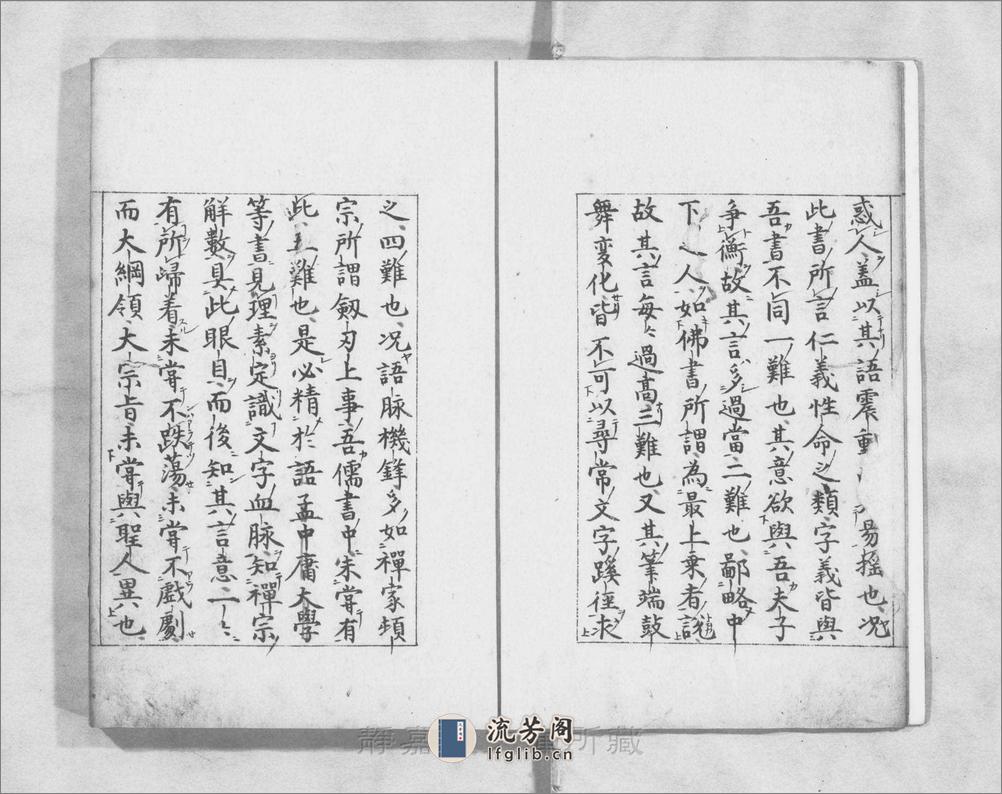 惑人盖以其語震動 易揺也况
此書所言仁義性命之類字義皆與
吾書不同一難也其意欲與吾夫子
争衡故其言多過當二難也鄙略中
下之人如佛書所謂為最上乗者說
故其言每〻過高三難也又其筆端鼓
舞変化皆不可以尋常文字蹊徑求
之四難也况語脉機鋒多如禪家頓
宗所謂劔刃上事吾儒書中未甞有
此五難也是必精於語孟中庸大學
等書見理素定識文字血脉知禪宗
解數具此眼目而後知其言意一〻
有所歸着未甞不跌蕩未甞不戲劇
而大綱領大宗旨未甞與聖人異也
静嘉 所藏
流芳阁
lfglib.cn